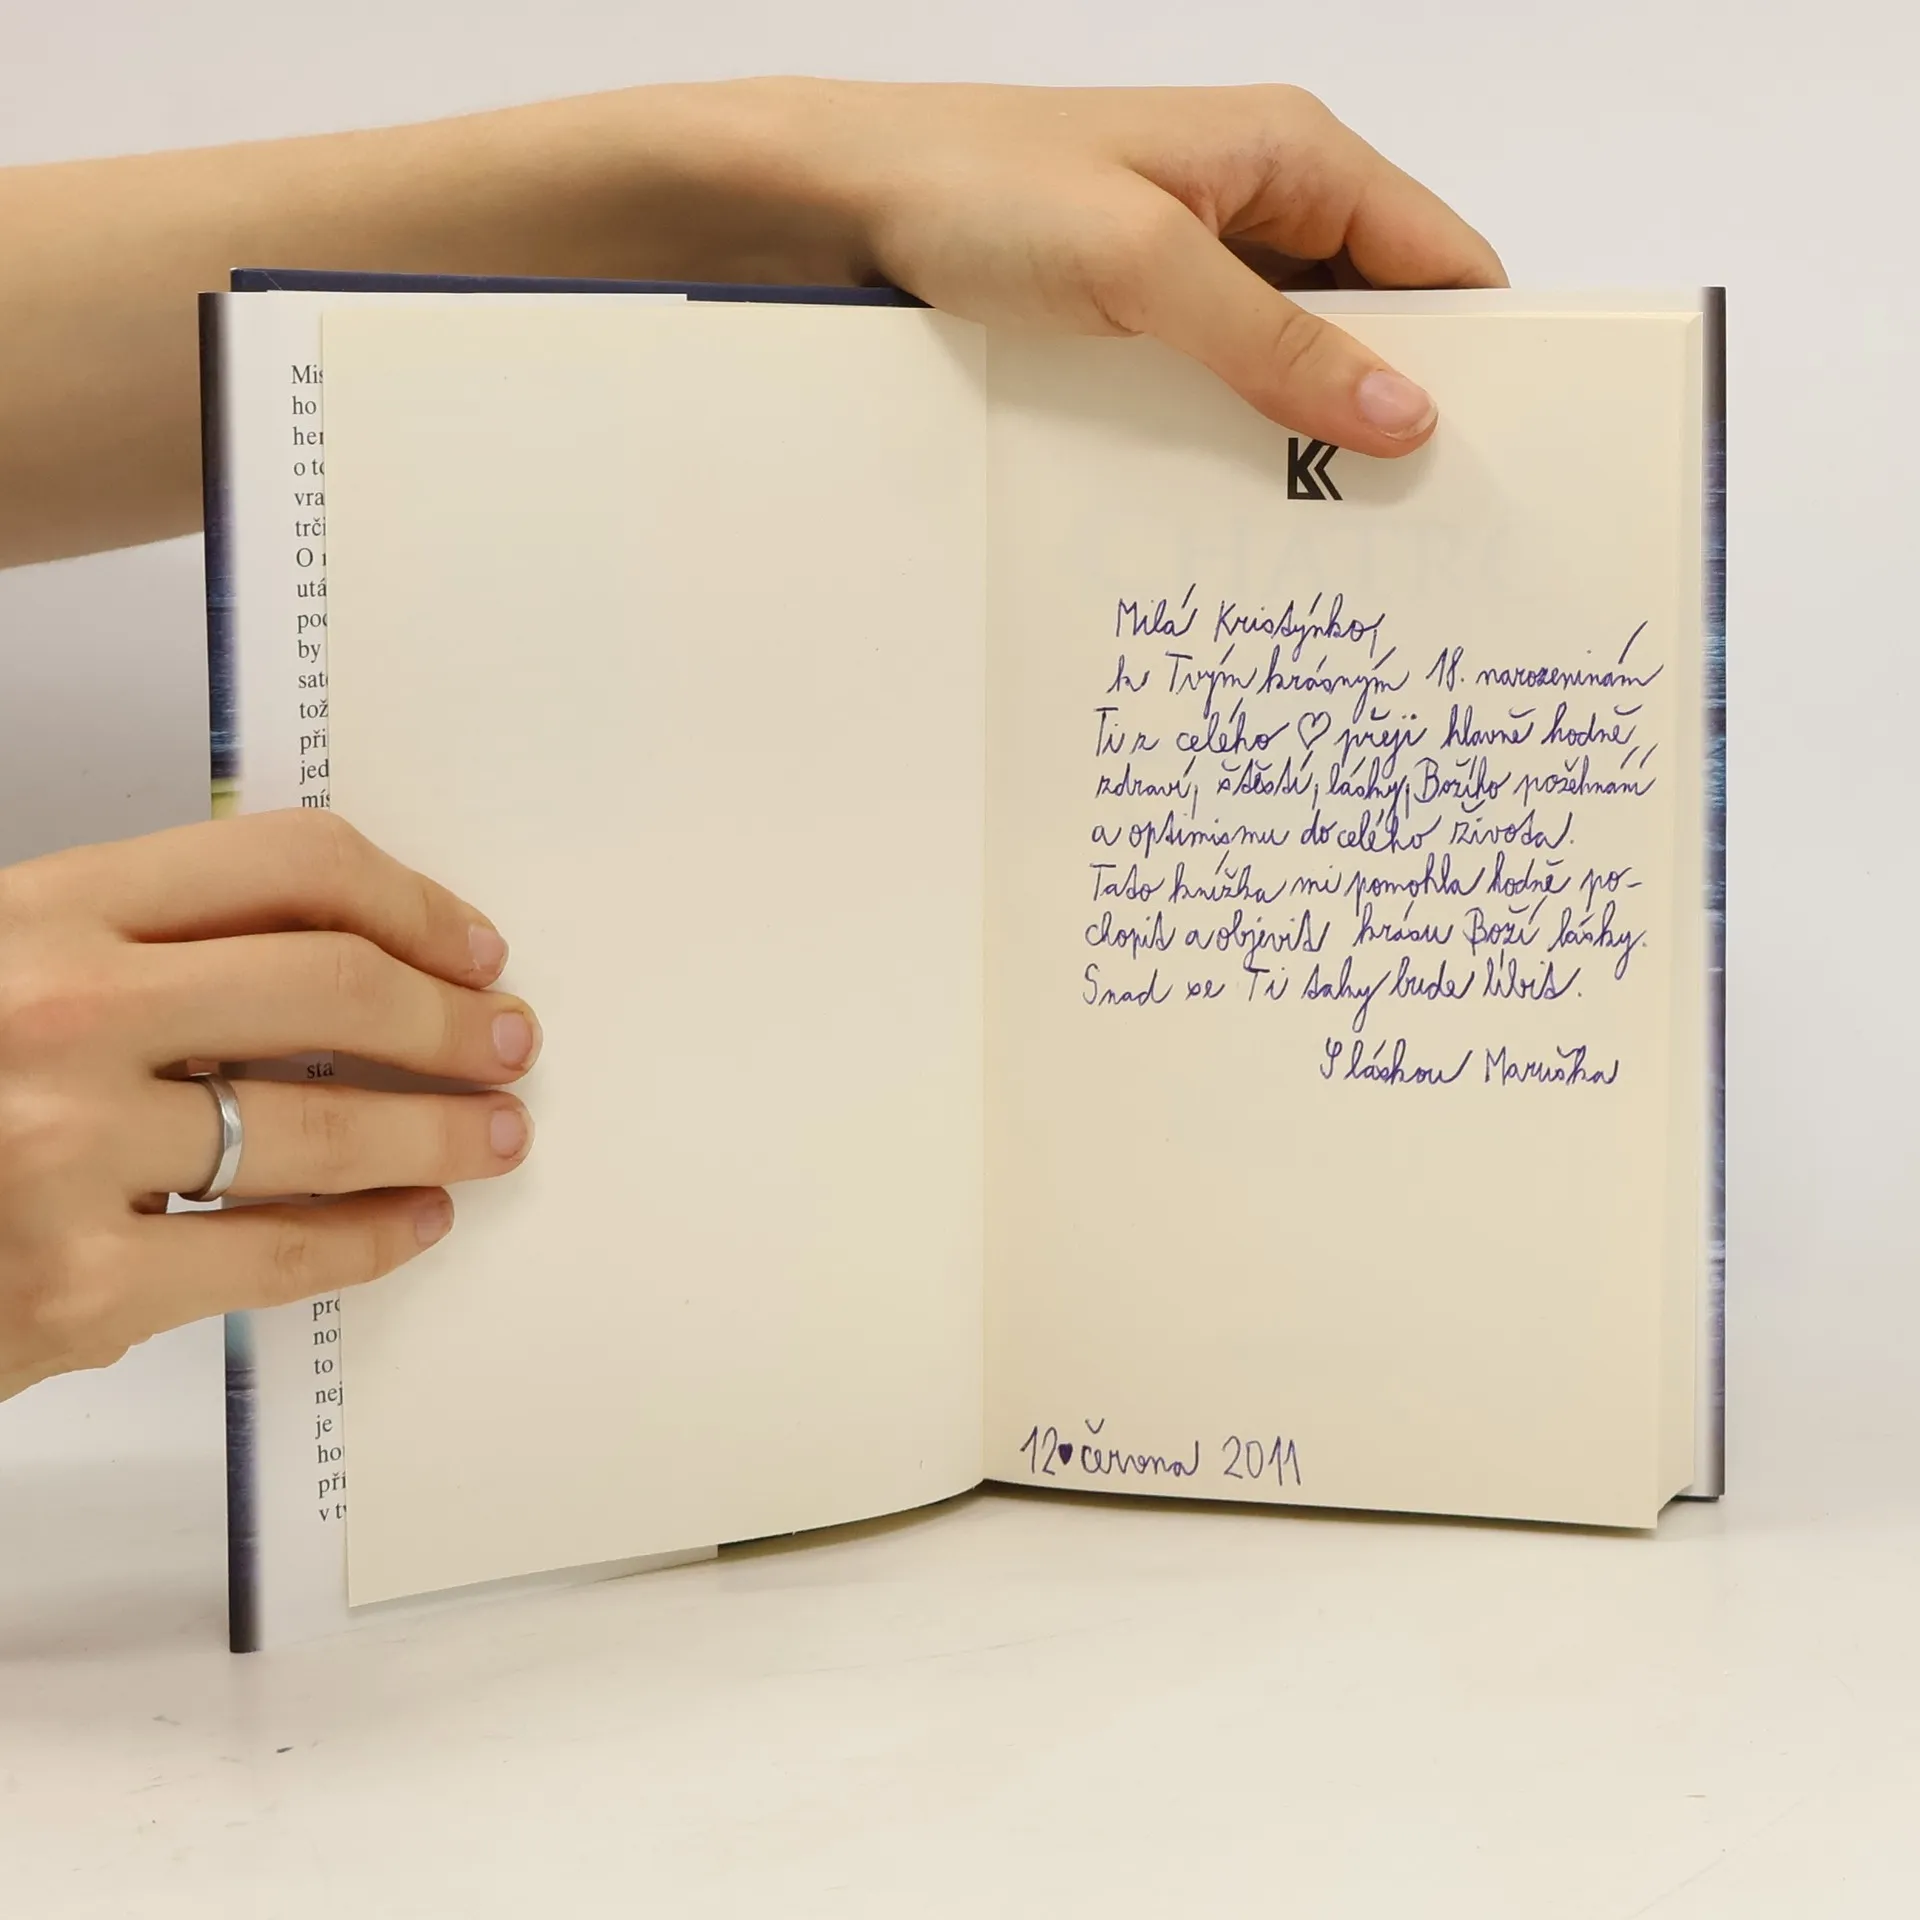 Mis
ho
her
o to
vra
trči
O
utá
poc
by
sat
tož
při
jed
mís
sta
pro
nou
to
nej
je
ho
pří
v tv
K
CHATRČ
Milá Kristýnko,
k Tvým krásným 18. narozeninám
Ti z celého ♡ přeji hlavně hodně
zdraví, štěstí, lásky, Božího požehnání
a optimismu do celého života.
Tato knížka mi pomohla hodně po-
chopit a objevit krásu Boží lásky.
Snad se Ti taky bude líbit.
S láskou Maruška
12♥června 2011